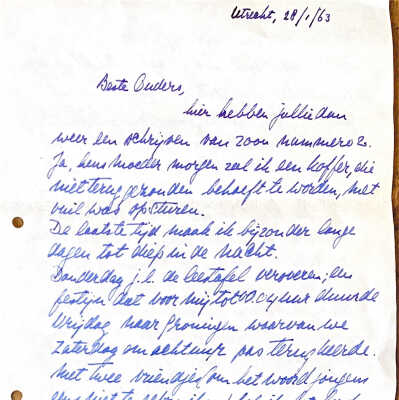 Utrecht, 28/1/63
Beste Ouders,
hier hebben jullie dan
weer een schrijven van zoon nummero 2.
Ja, hens moeder morgen zal ik een koffer, die
niet terug gezonden behoeft te worden, met
vuil was opsturen.
De laatste tijd maak ik bijzonder lange
dagen tot diep in de nacht.
Donderdag j.l. de leestafel veroveren; een
festijn dat voor mij tot 00.00 uur duurde
Vrijdag naar Groningen waarvan we
Zaterdag om acht uur pas terugkeerde.
Met twee vriendjes, om het woord jongens
niet te